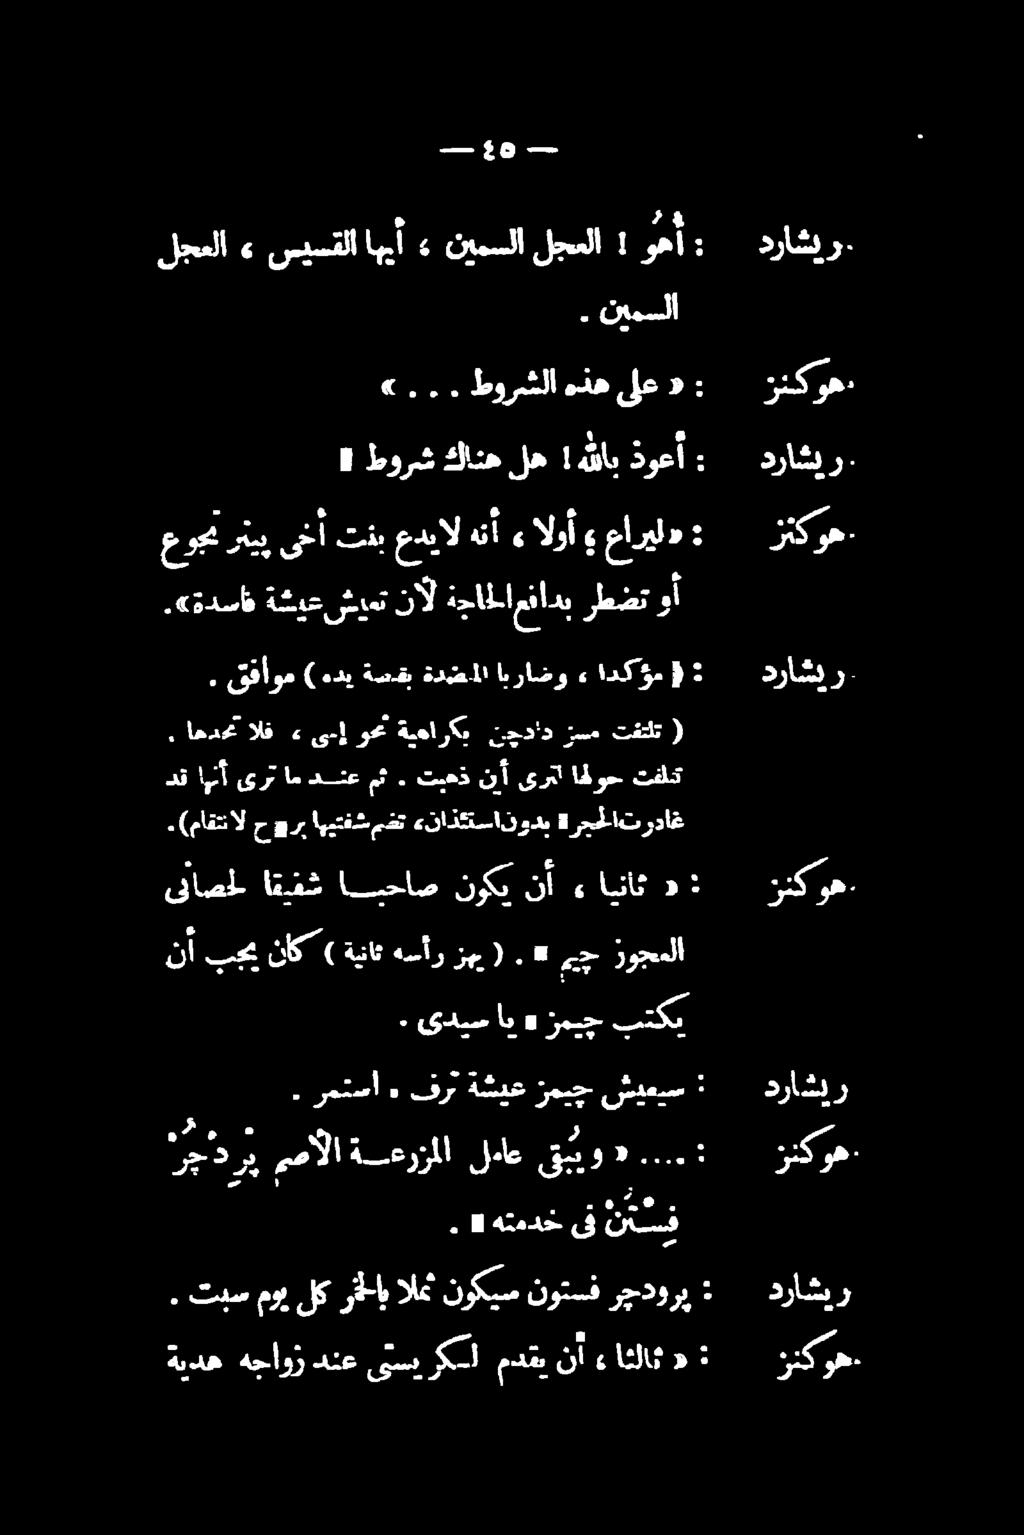 — ٤٥ —
ريشارد : أَهُو ! العجل السمين ، أيها القسيس ، العجل
السمين .
هوكنز : « على هذه الشروط . . . »
ريشارد : أعوذ بالله ! هل هناك شروط
هوكنز : « ليراع ؛ أولا ، أنه لايدع بنت أخى بيتر تجوع
أو تضطر بدافع الحاجة لأن تعيش عيشة فاسدة » .
ريشارد : ( مؤكدا ، وضاربا المنضدة بقبضة يده ) موافق .
( تلتفت مسز ددجن بكراهية نحو إسى ، فلا تجدها .
تتلفت حولها لترى أين ذهبت . ثم عند ما ترى أنها قد
غادرت الحجرة بدون استئذان ، تضم شفتيها بروح لانتقام ) .
هوكنز : « ثانيا ، أن يكون صاحبا شفيقا لحصانى
العجوز چيم » . ( يهز رأسه ثانية ) كان يجب أن
يكتب چيمز يا سيدى .
ريشارد : سيعيش چيمز عيشة ترف . استمر .
هوكنز : .... « ويُبقى عامل المزرعة الأصم پْرِدْچَرْ
فِسْتَنْ فى خدمته .
ريشارد : پرودچر فستون سيكون ثملا بالخمر كل يوم سبت .
هوكنز : « ثالثا ، أن يقدم لسكريستى عند زواجه هدية